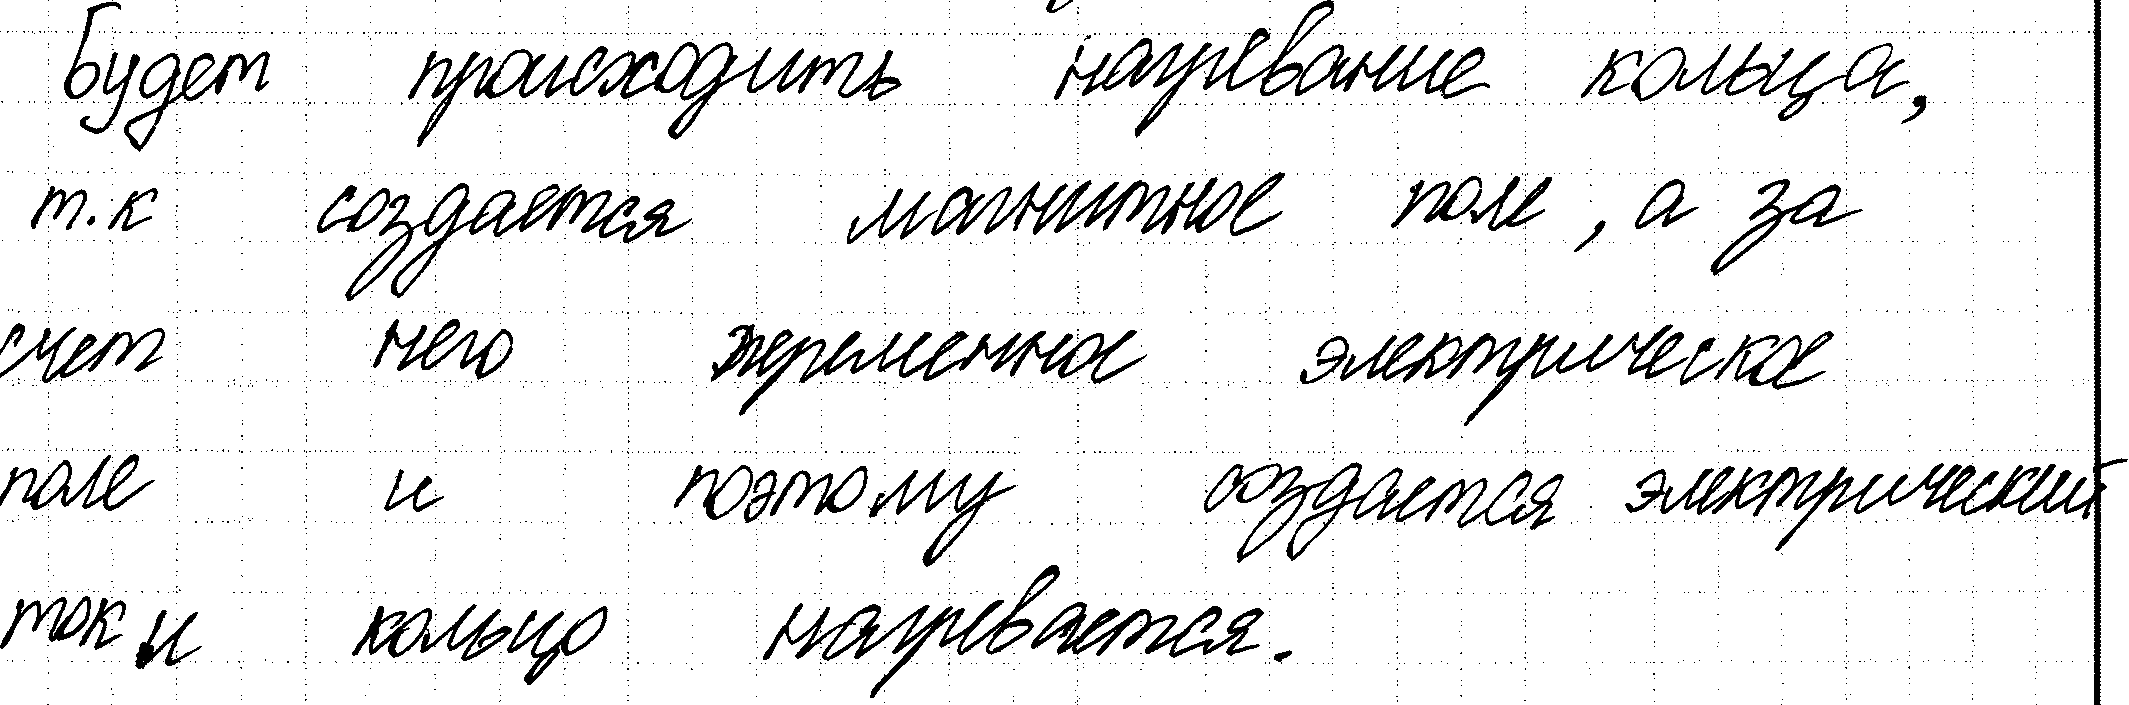 будет происходить нагревание кольца,
т.к создается магнитное поле, а за
счет него переменное электрическое
поле и поэтому создается электрический
ток и кольцо нагревается.